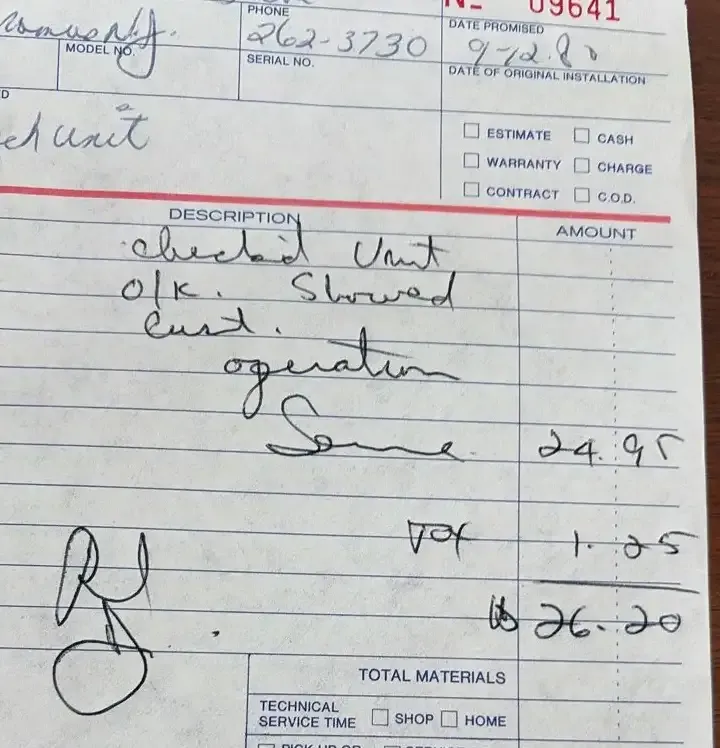 No 09641
PHONE
262-3730
DATE PROMISED
9-12.80
N.J.
MODEL NO.
SERIAL NO.
DATE OF ORIGINAL INSTALLATION
ED
unit
ESTIMATE CASH
WARRANTY CHARGE
CONTRACT C.O.D.
DESCRIPTION AMOUNT
Checked Unit
O/K. Showed
Cust.
operation
Service 24.95
Tax 1.25
$ 26.20
TOTAL MATERIALS
TECHNICAL
SERVICE TIME SHOP HOME
PICK UP OR